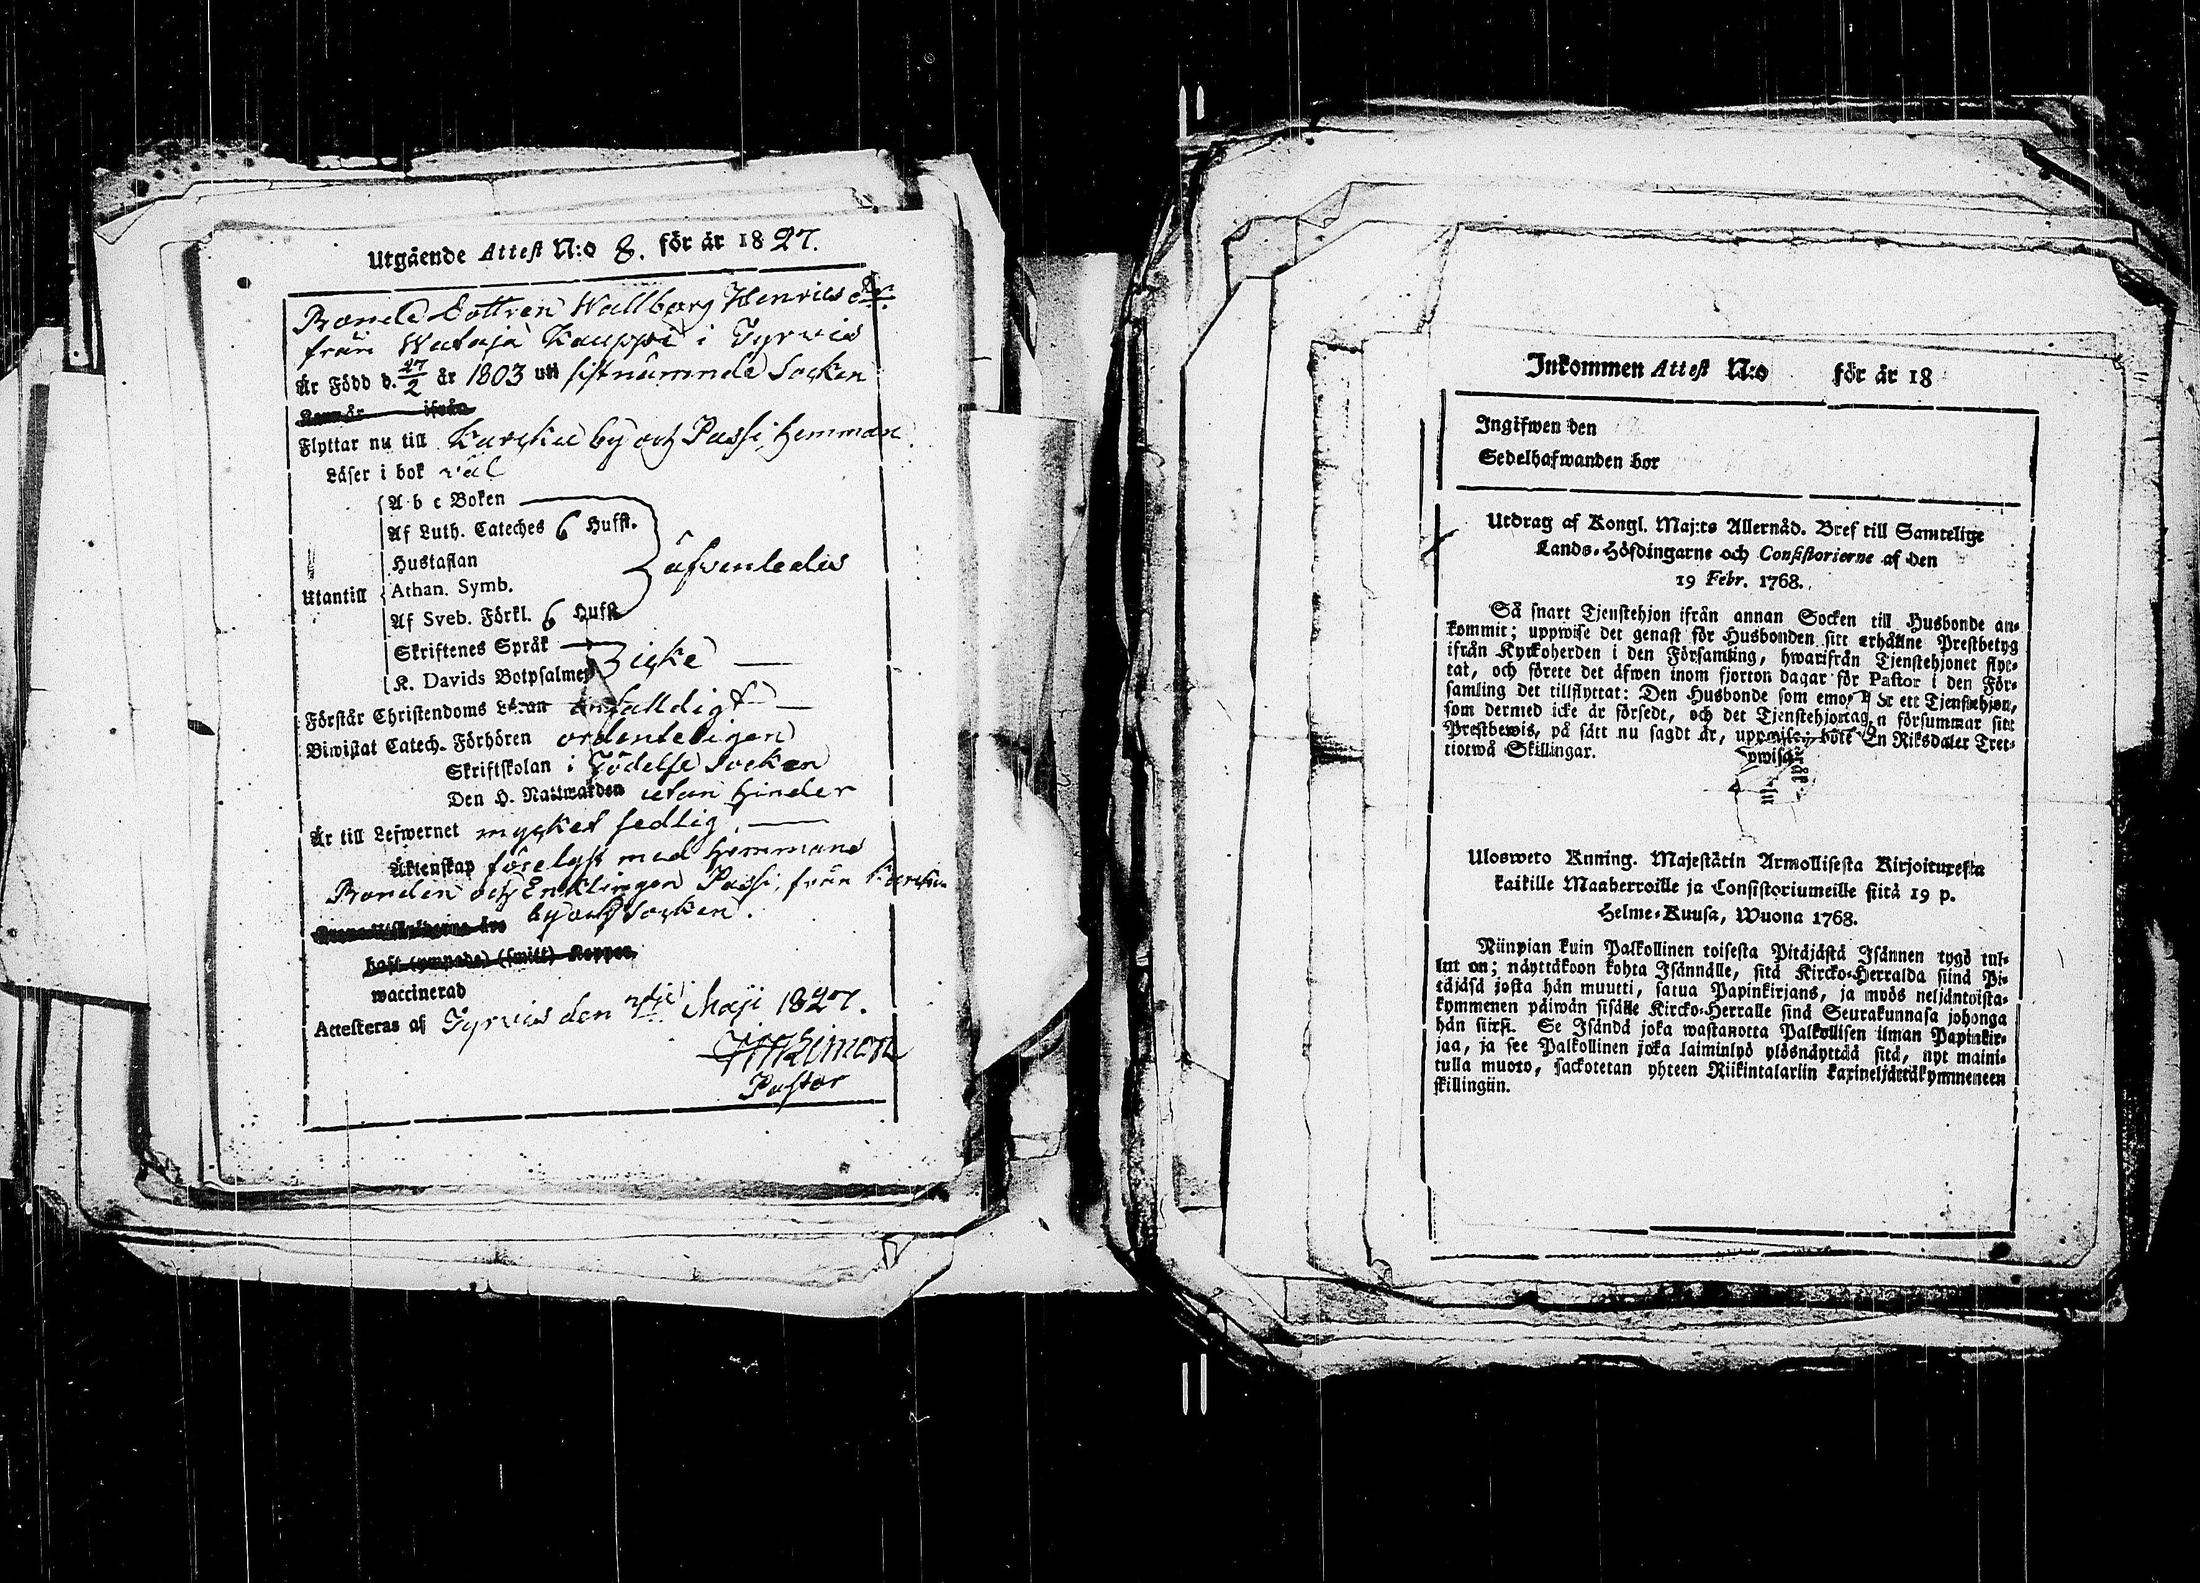 Utgående Attest N:o 8. för år 1827.
Bonde Dottren Wallborg Henrics dr
från Wataja Kauppi i Tyrvis
Är Född d. 27/2 år 1803 uti sistnämnde Socken
Kom år ifrån
Flyttar nu till Karsku by och Passi hemman.
Läser i bok väl
A b c Boken
Af Luth. Cateches 6 Hufst.
Hustaflan
äfvenledes
Utantill
Athan. Symb.
Af Sveb. Förkl. 6 Hufst.
Skriftenes Språk
icke
K. Davids Botpsalmer
Förstår Christendoms Läran enfalldigt
Biwistat Catech. Förhören ordenteligen
Skriftskolan i Födelse Socken
Den H. Nattwarden utan hinder
Är till Lefwernet mycket sedlig,
Äktenskap förelyst med Hemmans
Bonden och Enklingen Passi, från Karsku
by och Socken.
haft (ympade) (smitt) Koppor.
waccinerad
Attesteras af Tyrvis den 7de Maji 1827.
Pastor
Inkommen Attest N:o för år 18
Ingifwen den
Sedelhafwanden bor
Utdrag af Kongl. Maj:ts Allernåd. Bref till Samtelige
Lands-Höfdingarne och Consistorierne af den
19 Febr. 1768.
Så snart Tjenstehjon ifrån annan Socken till Husbonde an-
kommit; uppwise det genast för Husbonden sitt erhållne Prestbetyg
ifrån Kyrkoherden i den Församling, hwarifrån Tjenstehjonet flyt-
tat, och förete det äfwen inom fjorton dagar för Pastor i den För-
samling det tillflyttat: Den Husbonde som emot ett Tjenstehjon,
som dermed icke är försedt, och det Tjenstehjon n försummar sitt
Prestbewis, på sätt nu sagdt är, uppwisa, bött En Riksdaler Tret-
tiotwå Skillingar.
Ulosweto Kuning. Majestätin Armollisesta Kirjoituxesta
kaikille Maaherroille ja Consistoriumeille siitä 19 p.
Helme-Kuusa, Wuona 1768.
Niinpian kuin Palkollinen toisesta Pitäjästä Isännen tygö tul-
lut on; näyttäkoon kohta Isännälle, sitä Kircko-Herralda siinä Pi-
täjäsä josta hän muutti, satua Papinkirjans, ja myös neljäntoista-
kymmenen päiwän sisälle Kircko-Herralle sinä Seurakunnasa johonga
hän siirsi. Se Isändä joka wastanotta Palkollisen ilman Papinkir-
jaa, ja see Palkollinen joka laiminlyö ylösnäyttää sitä, nyt maini-
tulla muoto, sackotetan yhteen Riikintalarlin kaxineljättäkymmeneen
skillingiin.